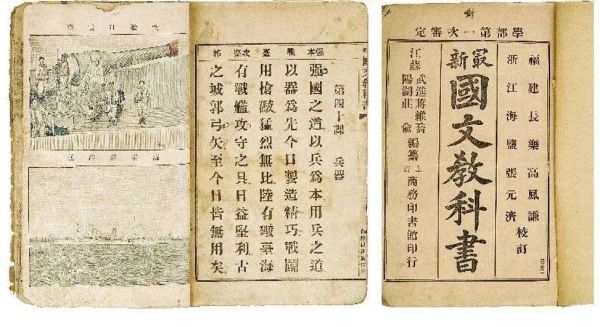 學部第一次審定
福建長樂高鳳謙
浙江海鹽張元濟
校訂
最新
國文教科書
江蘇
武進蔣維喬
陽湖莊俞
編纂
上海商務印書館印行
國文教科書
第四十課 兵器
强國之道以兵爲本用兵之道
以器爲先今日製造精巧戰鬭
用槍礮猛烈無比陸有礮臺海
有戰艦攻守之具日益堅利古
之城郭弓矢至今日皆無用矣
戰
臺
郭